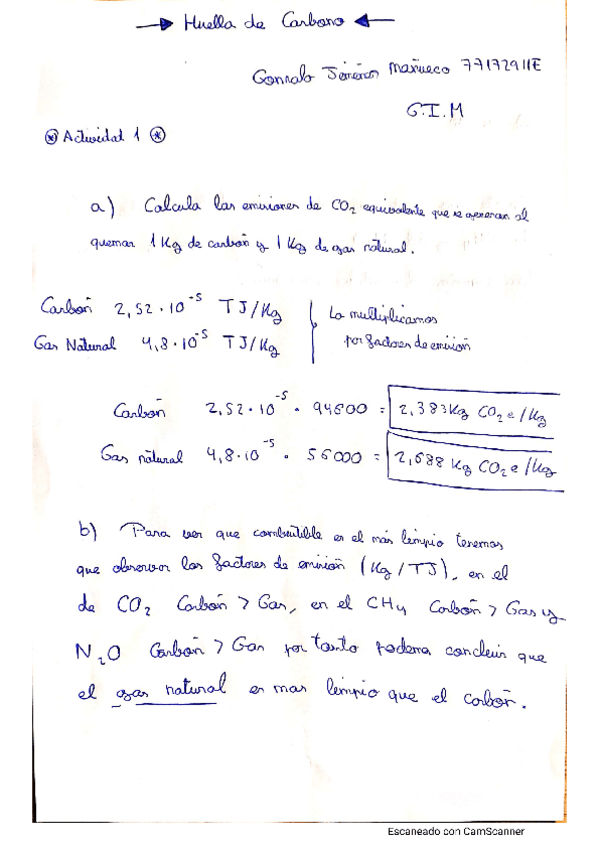 Huella de Carbono
Gonzalo Mañueco 77172911E
G.I.M
Actividad 1
a) Calcula las emisiones de CO₂ equivalente que se generan al
quemar 1 Kg de carbón y 1 Kg de gas natural.
Carbón 2,52·10⁻⁵ TJ/Kg
Gas Natural 4,8·10⁻⁵ TJ/Kg
Lo multiplicamos
por factores de emisión
Carbón 2,52·10⁻⁵ · 94600 = 2,383Kg CO₂e/Kg
Gas natural 4,8·10⁻⁵ · 56000 = 2,688 Kg CO₂e/Kg
b) Para ver que combustible es el más limpio tenemos
que observar los factores de emisión (Kg/TJ), en el
de CO₂ Carbón > Gas, en el CH₄ Carbón > Gas y
N₂O Carbón > Gas por tanto podemos concluir que
el gas natural es mas limpio que el carbón.
Escaneado con CamScanner